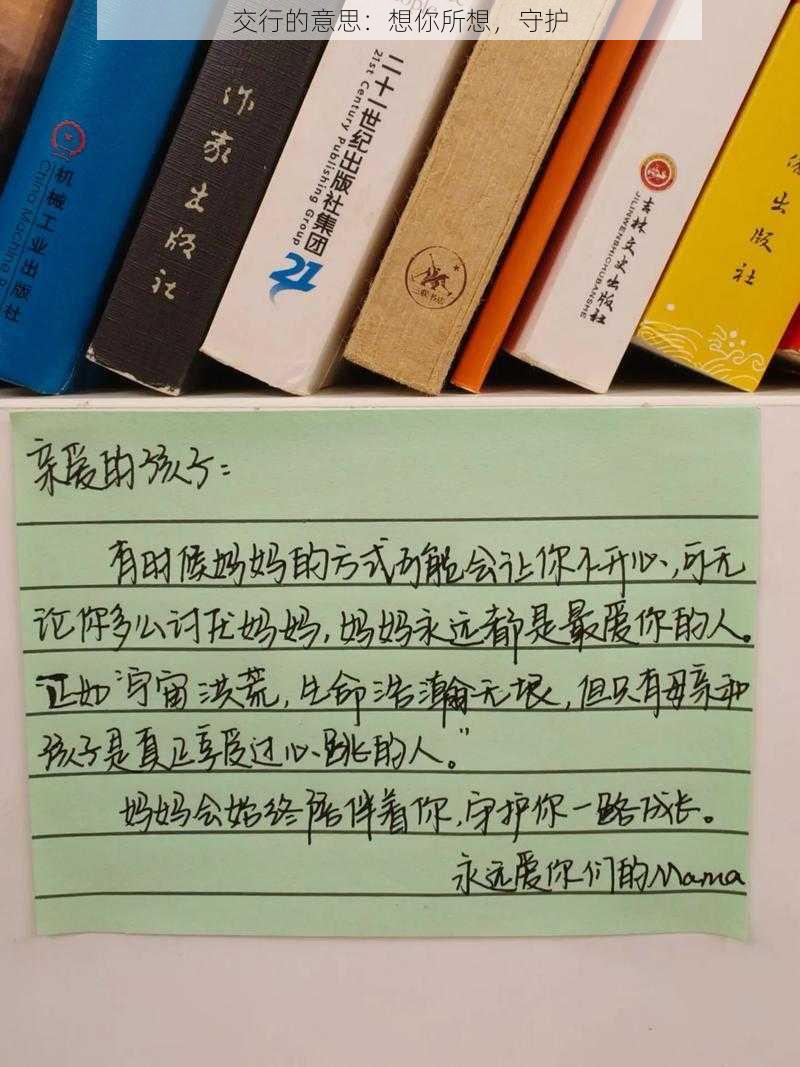 交行的意思：想你所想，守护
机械工业出版社
China Machine P
作家出版社
二十一世纪出版社集团
21st Century Publishing Group
21
三联书店
吉林文史出版社
JILINWENSHICHUBANSHE
出版社
亲爱的孩子：
有时候妈妈的方式可能会让你不开心，可无
论你多么讨厌妈妈，妈妈永远都是最爱你的人。
正如"宇宙洪荒，生命浩瀚无垠，但只有母亲和
孩子是真正享受过心跳的人。"
妈妈会始终陪伴着你，守护你一路成长。
永远爱你们的Mama